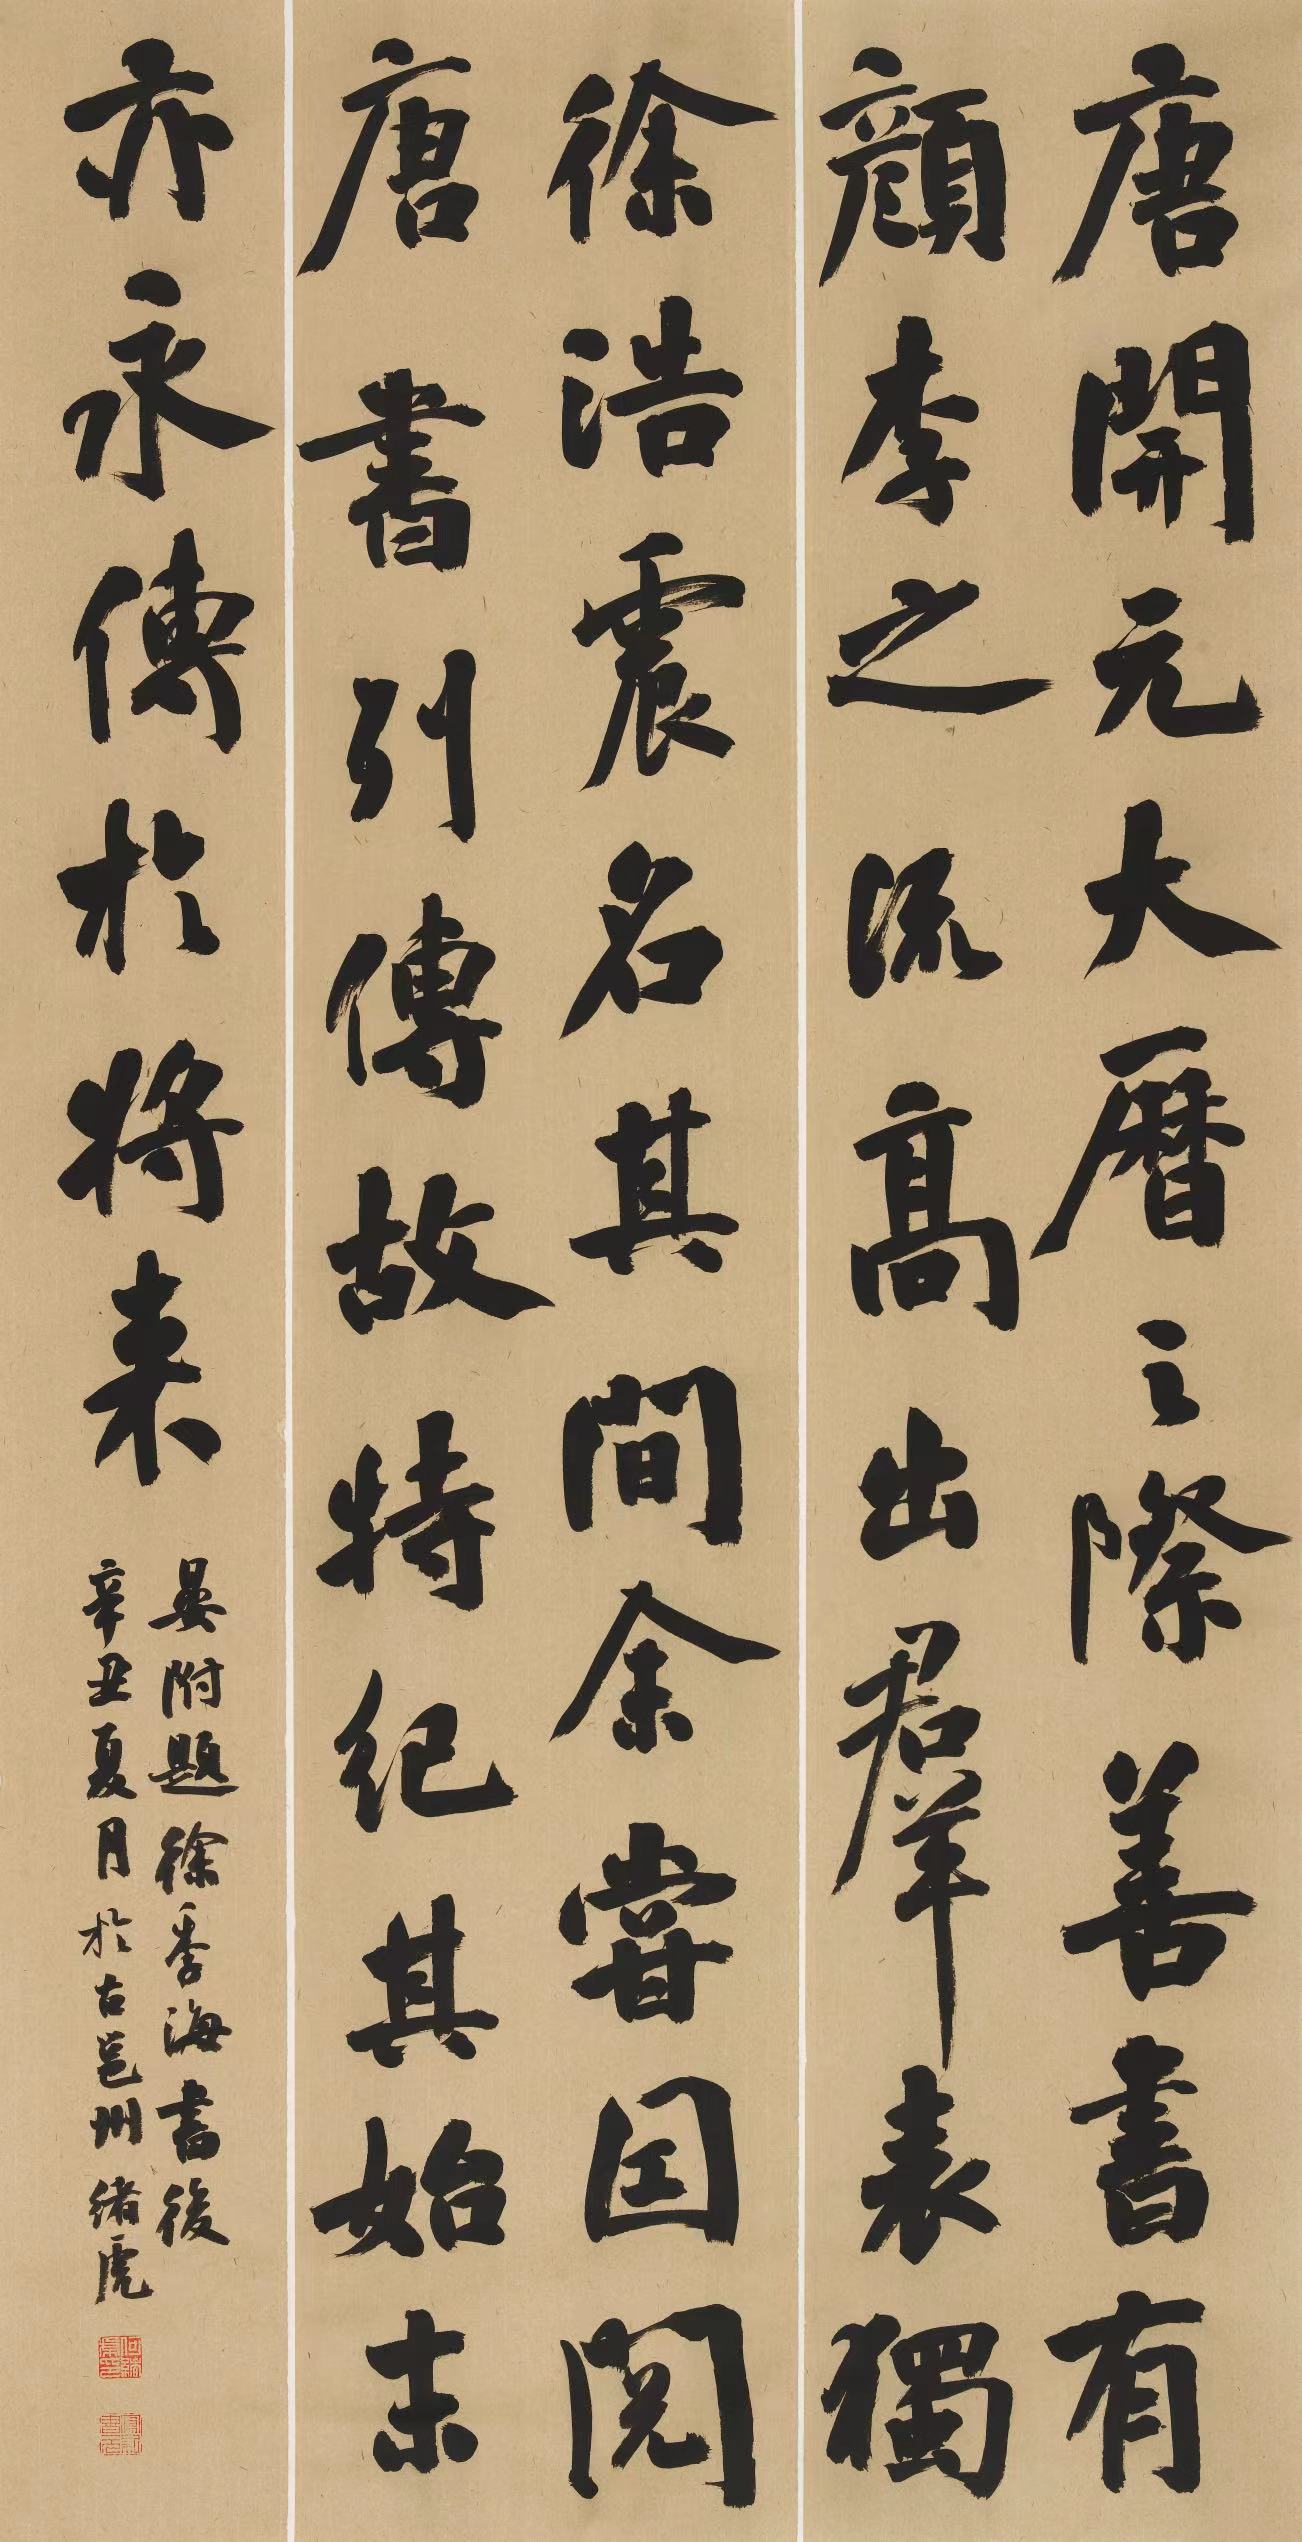 唐開元大曆之際善書有
顔李之流高出羣表獨
徐浩震名其間余嘗因閲
唐書列傳故特紀其始末
亦永傳於將来
晏附題徐季海書後
辛丑夏月於古邕州緒虎